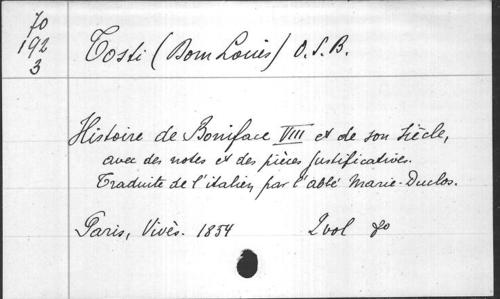 70
192
3
Tosti (Dom Louis) O.S.B.
Histoire de Boniface VIII et de son siècle,
avec des notes et des pièces justificatives.
Traduite de l'italien par l'abbé Marie-Duclos.
Paris, Vivès. 1854 2 vol 8o